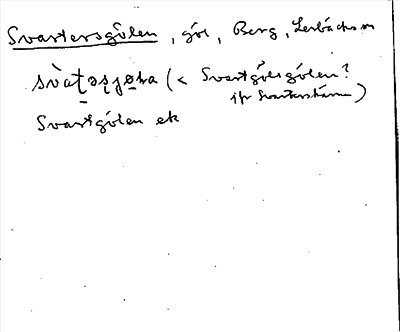 Svartersgölen, göl, Berg, Lerbäcks sn
svàtəsjøna (< Svartgölsgölen?
jfr Svarterskärren)
Svartgölen ek